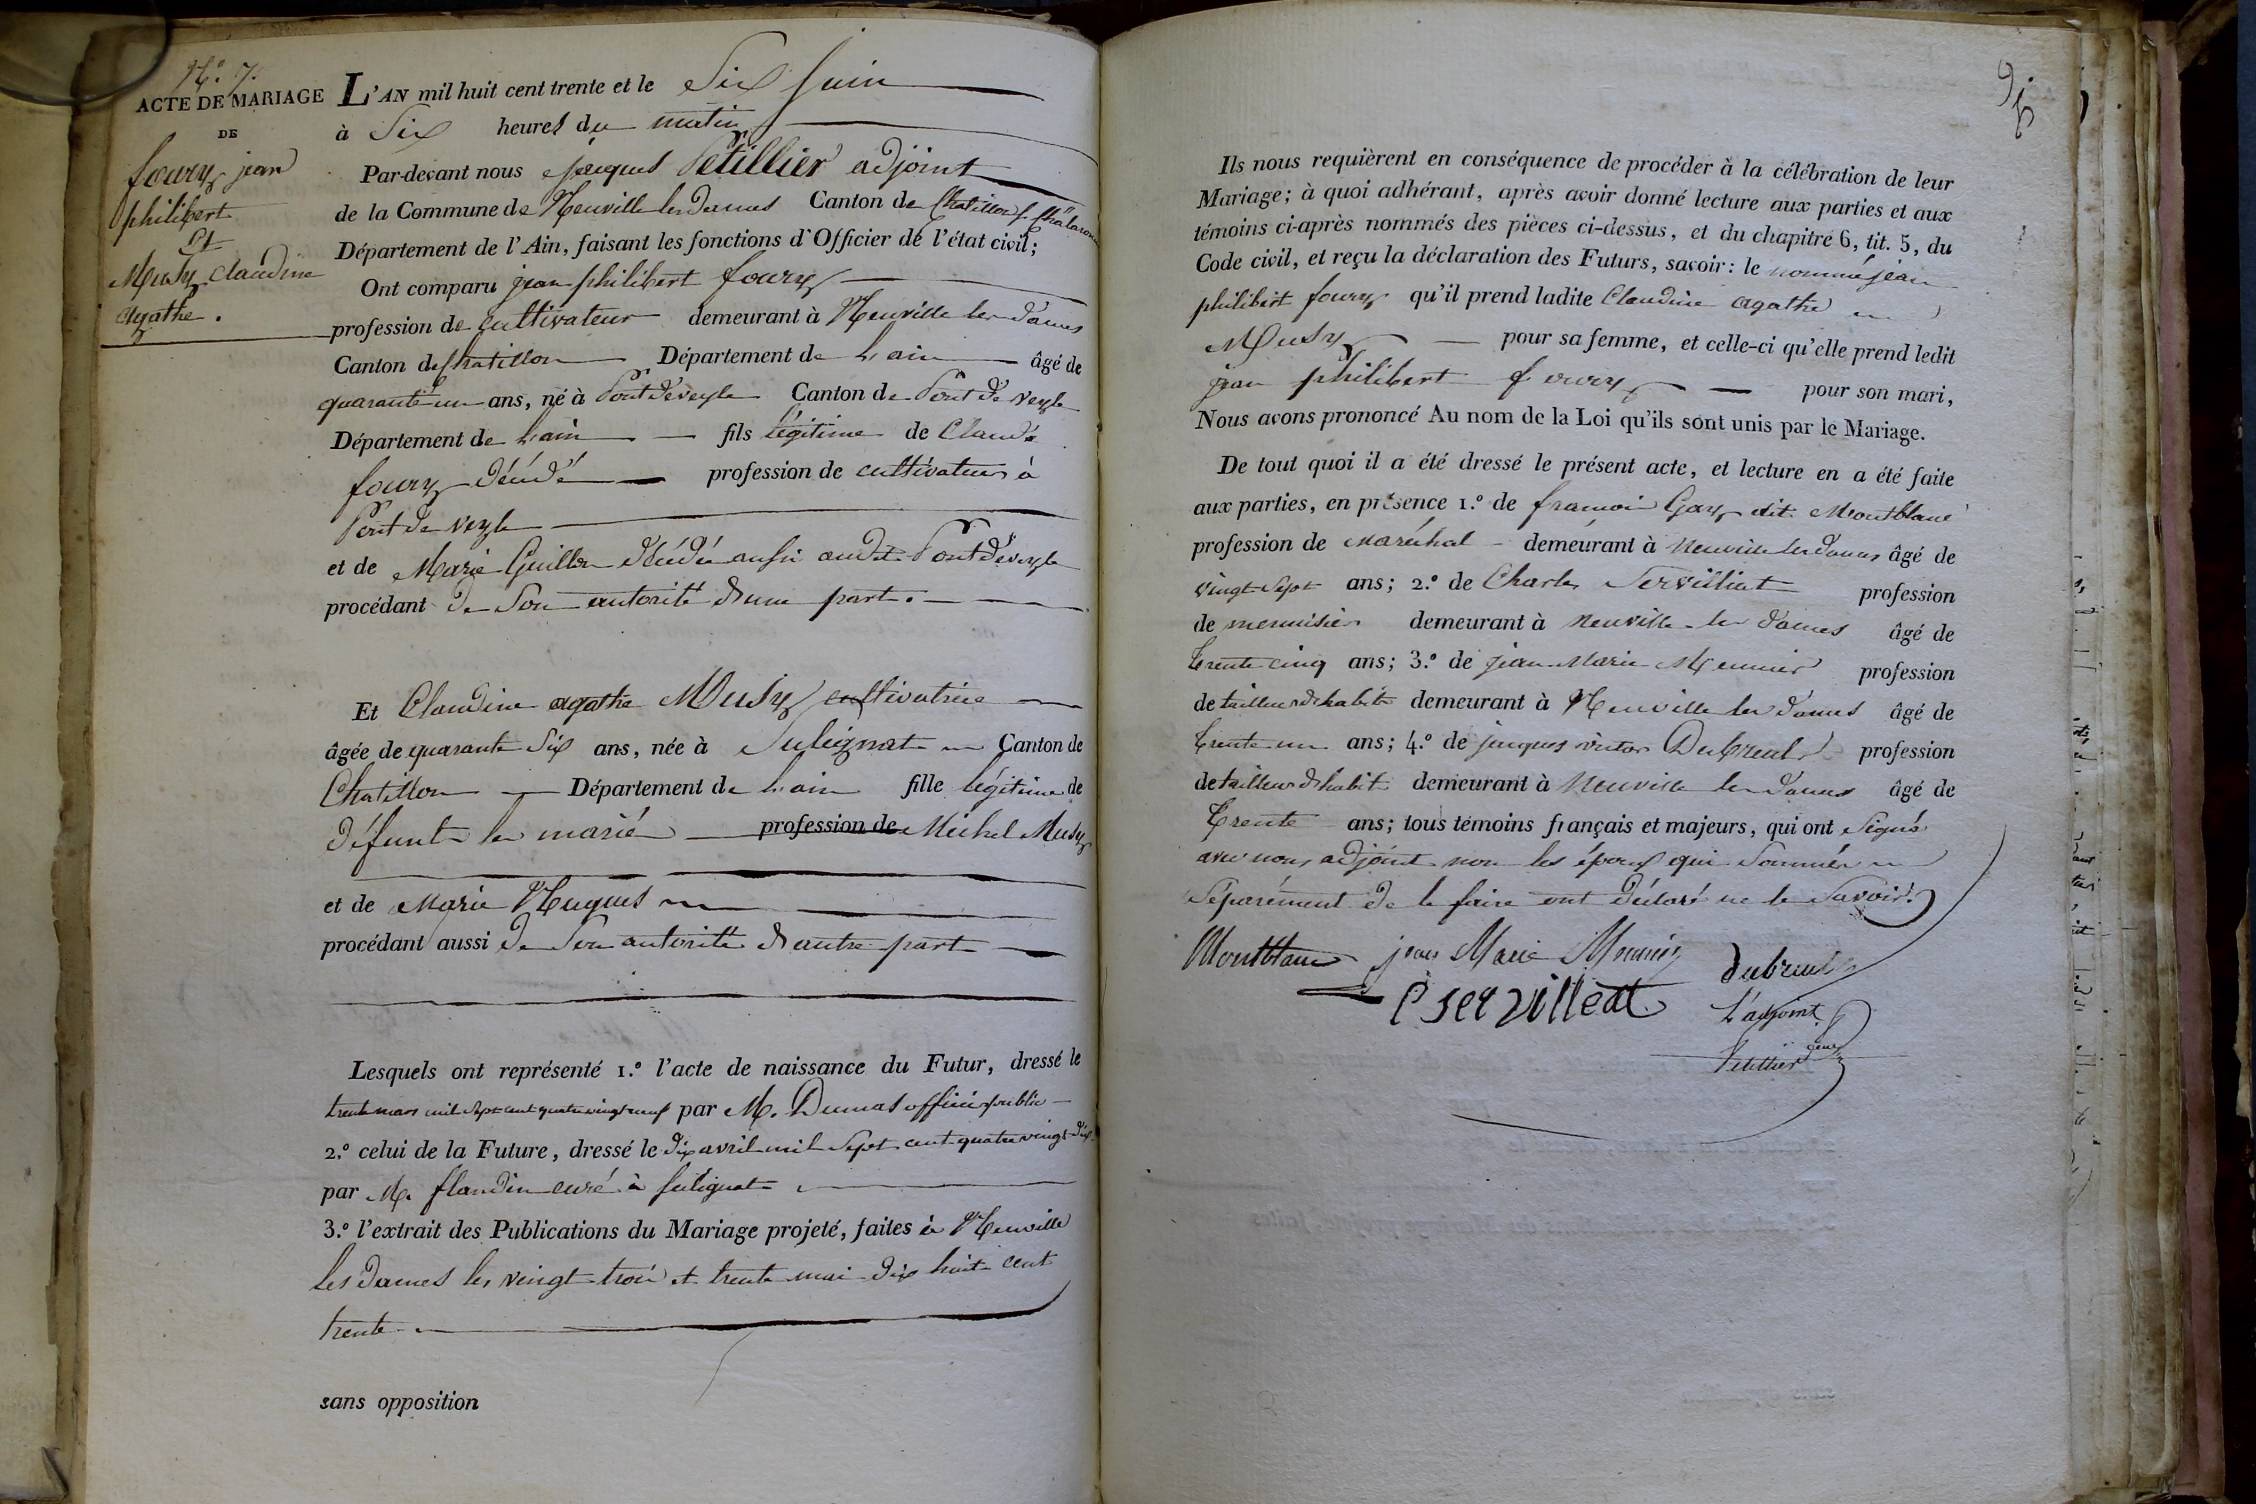 N.° 7.
ACTE DE MARIAGE
DE
foury jean
philibert
Et
Musy Claudine
agathe.
L'AN mil huit cent trente et le Six Juin
à Six heures du matin
Par-devant nous jacques Pétillier adjoint
de la Commune de Neuville les dames Canton de Chatillon s. Chalaronne
Département de l'Ain, faisant les fonctions d'Officier de l'état civil;
Ont comparu jean philibert foury
profession de cultivateur demeurant à Neuville les dames
Canton de Chatillon Département de L'ain âgé de
quarante un ans, né à Pont de veyle Canton de Pont de veyle
Département de L'ain fils légitime de Claude
foury décédé profession de cultivateur à
Pont de veyle
et de Marie Guillon décédée aussi audit Pont de veyle
procédant de Son autorité d'une part.
Et Claudine agathe Musy cultivatrice
âgée de quarante Six ans, née à Suligniat Canton de
Chatillon Département de L'ain fille légitime de
défunts les mariés profession de Michel Musy
et de Marie Nugues
procédant aussi de Son autorité d'autre part
Lesquels ont représenté 1.° l'acte de naissance du Futur, dressé le
trente mars mil Sept cent quatre vingt neuf par M. Dumas officier public
2.° celui de la Future, dressé le dix avril mil Sept cent quatre vingt dix
par M. flandin curé à Sulignat
3.° l'extrait des Publications du Mariage projeté, faites à Neuville
les dames les vingt trois et trente mai dix huit cent
trente
sans opposition
95
Ils nous requièrent en conséquence de procéder à la célébration de leur
Mariage; à quoi adhérant, après avoir donné lecture aux parties et aux
témoins ci-après nommés des pièces ci-dessus, et du chapitre 6, tit. 5, du
Code civil, et reçu la déclaration des Futurs, savoir: le nommé jean
philibert foury qu'il prend ladite Claudine agathe
Musy pour sa femme, et celle-ci qu'elle prend ledit
jean philibert foury pour son mari,
Nous avons prononcé Au nom de la Loi qu'ils sont unis par le Mariage.
De tout quoi il a été dressé le présent acte, et lecture en a été faite
aux parties, en présence 1.° de francois Gay dit Montblanc
profession de maréchal demeurant à Neuville les dames âgé de
vingt Sept ans; 2.° de Charles Servilliat profession
de menuisier demeurant à Neuville les dames âgé de
trente cinq ans; 3.° de jean Marie Meunier profession
de tailleur d'habits demeurant à Neuville les dames âgé de
trente un ans; 4.° de jacques victor Dubreul profession
de tailleur d'habit demeurant à Neuville les dames âgé de
trente ans; tous témoins français et majeurs, qui ont Signés
avec nous adjoint non les époux qui Sommés
Séparément de le faire ont déclaré ne le Savoir.
Montblanc jean Marie Meunier dubreul
C Servilleat L'adjoint
Pétillier